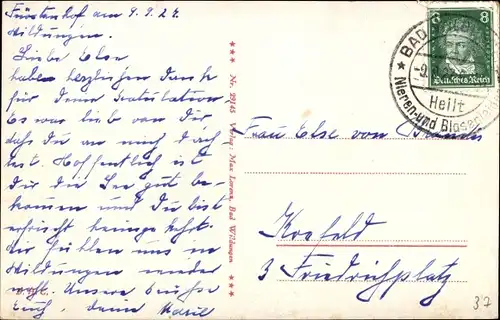 Fürstenhof am 9.9.27.
Wildungen.
Liebe Else
haben herzlichen Dank
für Deine Gratulation.
Es war lieb von Dir
daß Du an mich
hast. Hoffentlich ist
Dir die See gut be-
kommen und Du bist
erfrischt heimgekehrt.
Wir fühlen uns in
Wildungen wieder
wohl. Unsere
Euch, Deine
*** Nr. 29165 Verlag: Max Lorenz, Bad Wildungen ***
BAD
-9.
Heilt
Nieren-und Blasen
8 8
Deutsches Reich
Frau Else von
Krefeld
3 Friedrichplatz
37